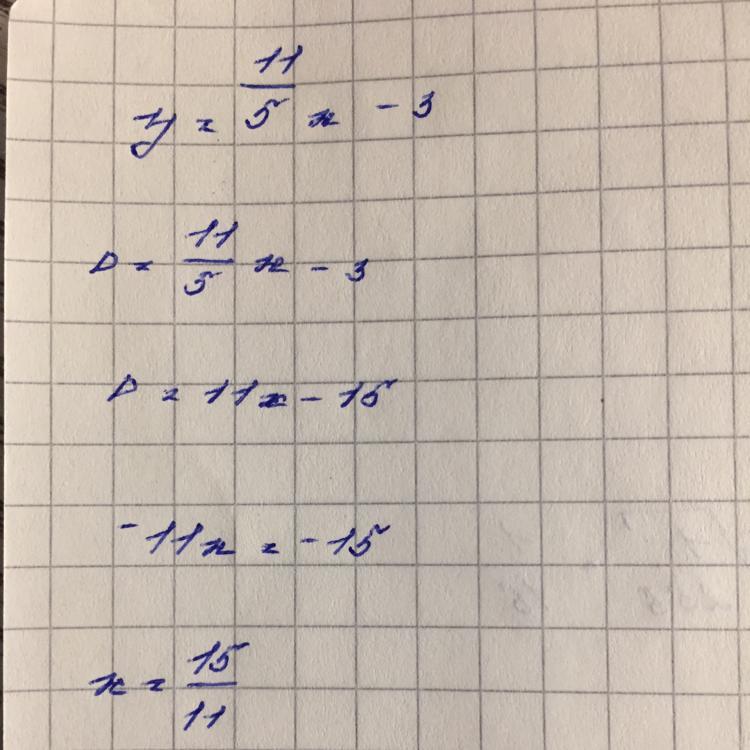 y = 11/5 x - 3
0 = 11/5 x - 3
0 = 11x - 15
-11x = -15
x = 15/11